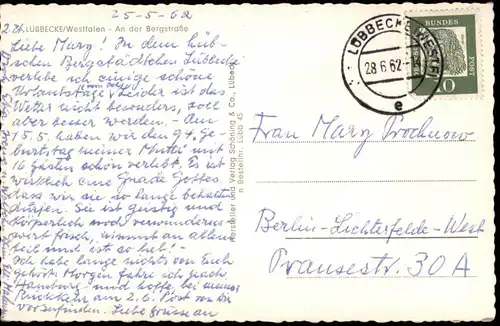 25-5-62
LÜBBECKE/Westfalen - An der Bergstraße
Liebe Mary! In dem hüb-
schen Bergstädtchen Lübbecke
verlebe ich einige schöne
Urlaubstage, leider ist das
Wetter nicht besonders, soll
aber besser werden. - Am
15.5. haben wir den 94. Ge-
burtstag meiner Mutti mit
16 Gästen schön verlebt. Es ist
wirklich eine Gnade Gottes
dass wir sie so lange behalten
dürfen. Sie ist geistig und
körperlich noch verwunderns-
wert frisch, nimmt an allem
teil und ist so lieb! -
Ich habe lange nichts von Euch
gehört. Morgen fahre ich nach
Hamburg und hoffe, bei meiner
Rückkehr am 2.6. Post von Dir
vorzufinden. Liebe Grüsse an
Hersteller und Verlag Schöning & Co., Lübeck
n Bestellnr. Lübb 45
LÜBBECKE (WESTF)
28.6.62
e
DEUTSCHE
BUNDES
POST
10
Frau Mary Prochnow
Berlin-Lichterfelde-West
Transestr. 30 A